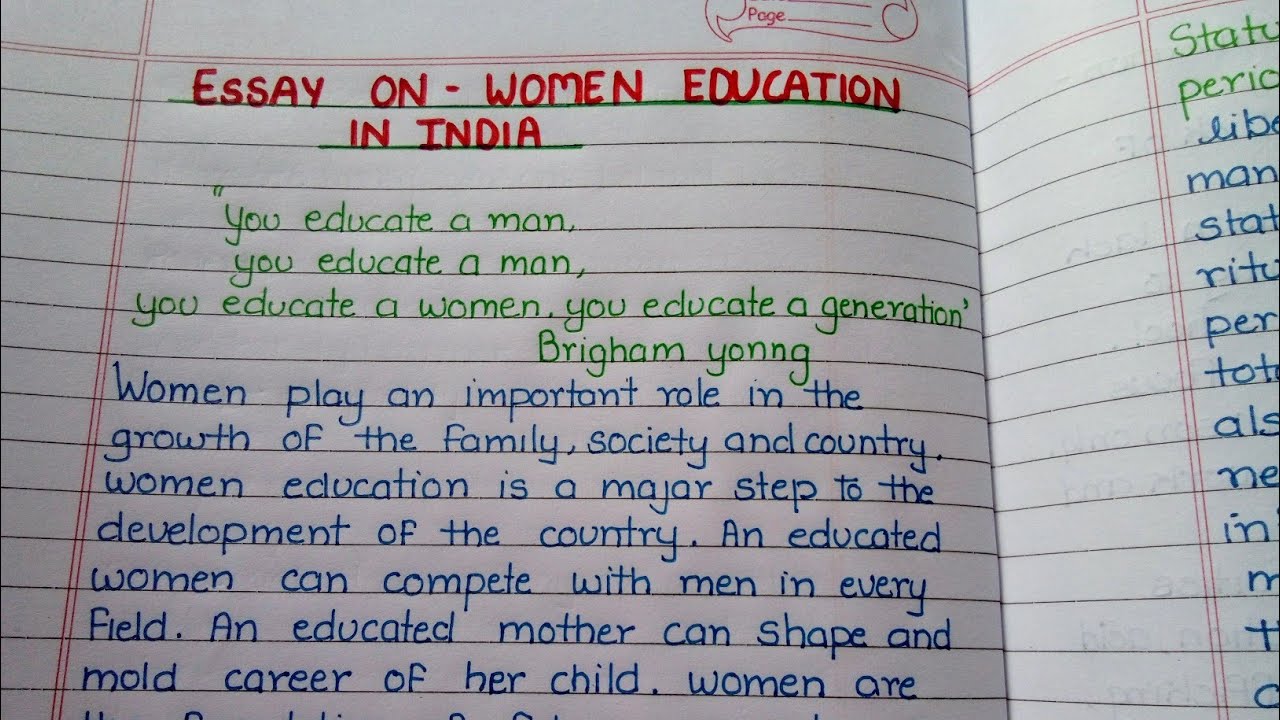 Page
ESSAY ON - WOMEN EDUCATION
IN INDIA
"you educate a man,
you educate a man,
you educate a women, you educate a generation'
Brigham yonng
Women play an important role in the
growth of the family, society and country.
women education is a major step to the
development of the country. An educated
women can compete with men in every
field. An educated mother can shape and
mold career of her child. women are